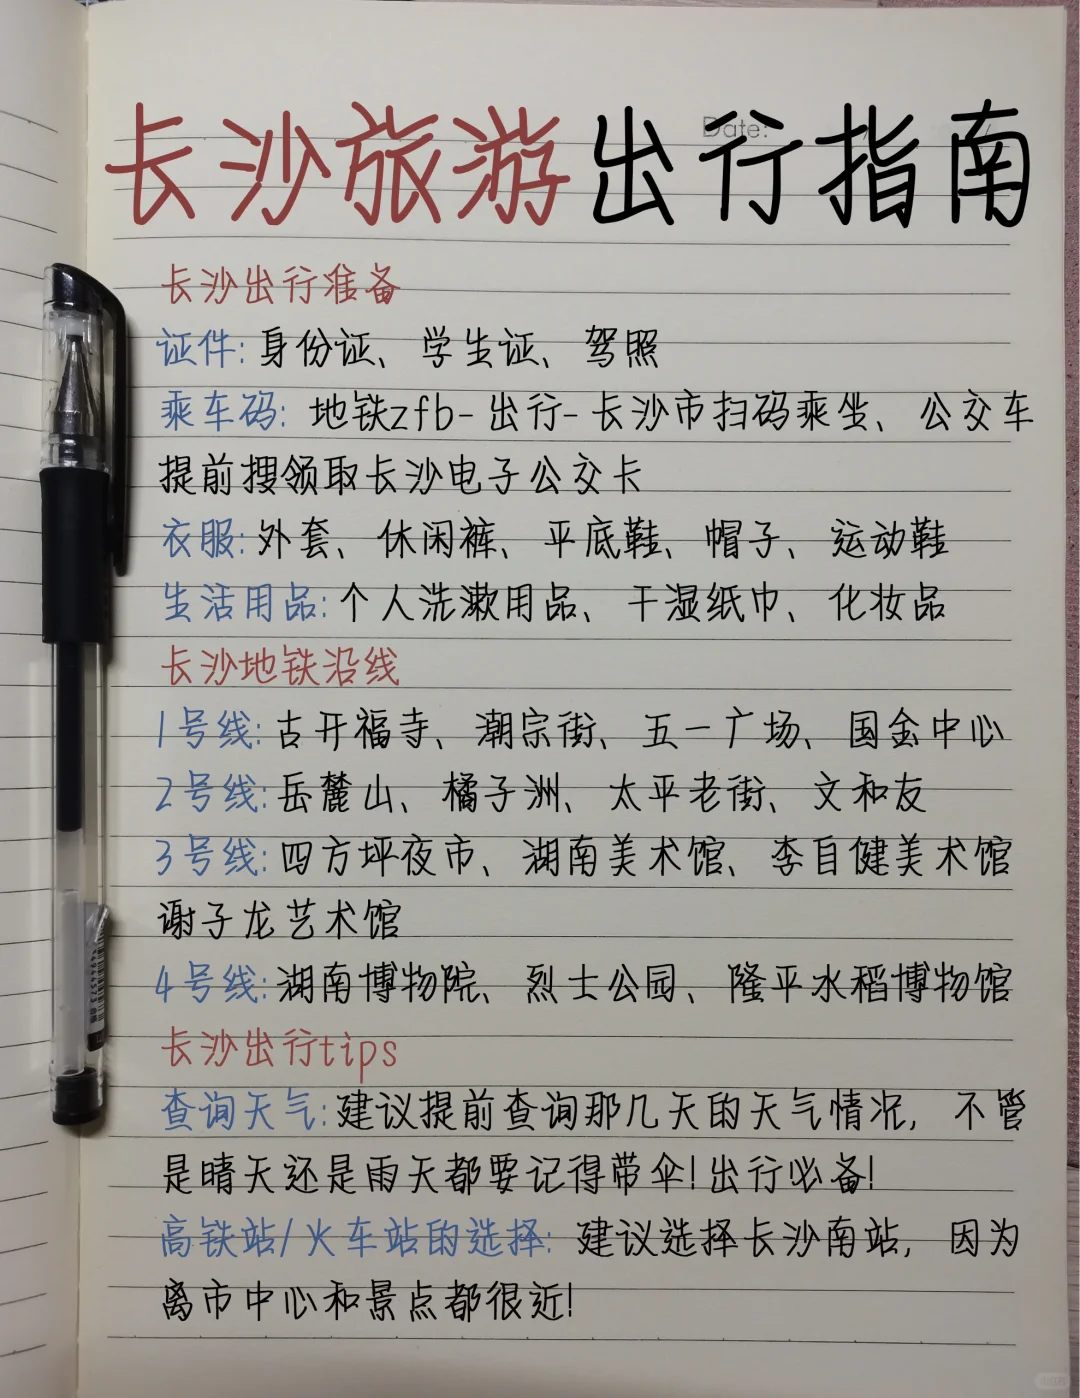 Date:
长沙旅游出行指南
长沙出行准备
证件:身份证、学生证、驾照
乘车码: 地铁zfb-出行-长沙市扫码乘坐、公交车
提前搜领取长沙电子公交卡
衣服:外套、休闲裤、平底鞋、帽子、运动鞋
生活用品:个人洗漱用品、干湿纸巾、化妆品
长沙地铁沿线
1号线:古开福寺、潮宗街、五一广场、国金中心
2号线:岳麓山、橘子洲、太平老街、文和友
3号线:四方坪夜市、湖南美术馆、李自健美术馆
谢子龙艺术馆
4号线:湖南博物院、烈士公园、隆平水稻博物馆
长沙出行tips
查询天气:建议提前查询那几天的天气情况, 不管
是晴天还是雨天都要记得带伞!出行必备!
高铁站/火车站的选择: 建议选择长沙南站, 因为
离市中心和景点都很近!